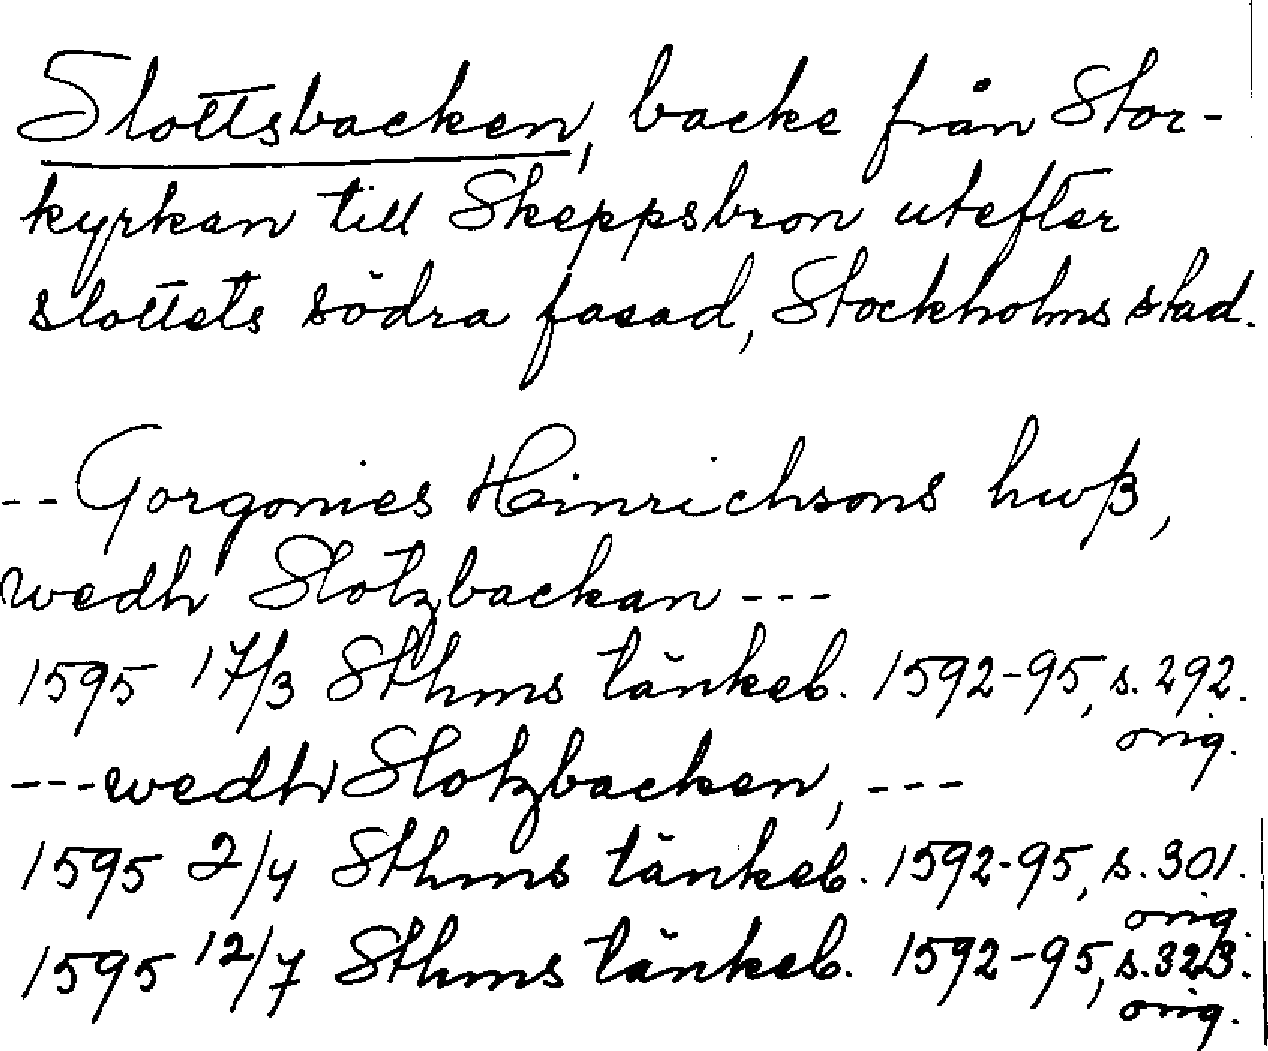 Slottsbacken, backe från Stor-
kyrkan till Skeppsbron utefter
slottets södra fasad, Stockholms stad.
-- Gorgonies Hinrichsons hwß,
wedh Slotzbackan ---
1595 17/3 Sthms tänkeb. 1592-95, s. 292.
orig.
--- wedh Slotzbacken, ---
1595 2/4 Sthms tänkeb. 1592-95, s. 301.
orig.
1595 12/7 Sthms tänkeb. 1592-95, s. 323.
orig.